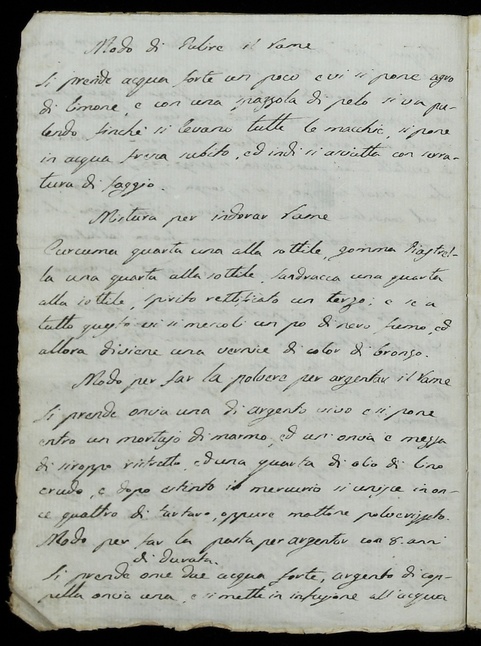 Modo di Pulire il Rame
Si prende acqua forte un poco e vi si pone agro
di limone, e con una spazzola di pelo si va pu-
lendo finchè si levano tutte le macchie, si pone
in acqua fresca subito, ed indi si asciutta con serra-
tura di faggio.
Mistura per indorar Rame
Curcuma quarta una alla sottile, gomma
la una quarta alla sottile sandracca una quarta
alla sottile, spirito rettificato un terzo; e se a
tutto questo vi si mescoli un po di nero fumo, ed
allora diviene una vernice di color di bronzo.
Modo per far la polvere per argentar il rame
Si prende oncia una di argento vivo e si pone
entro un mortajo di marmo, ed un' oncia e mezza
di siroppo ristretto, ed una quarta di olio di lino
crudo, e dopo estinto il mercurio si unisce in on-
ce quattro di tartaro, oppure mattone polverizzato.
Modo per far la pasta per argentar con 8. anni
di durata.
Si prende once due acqua forte, argento di cop-
pella oncia una, e si mette in infusione all'acqua